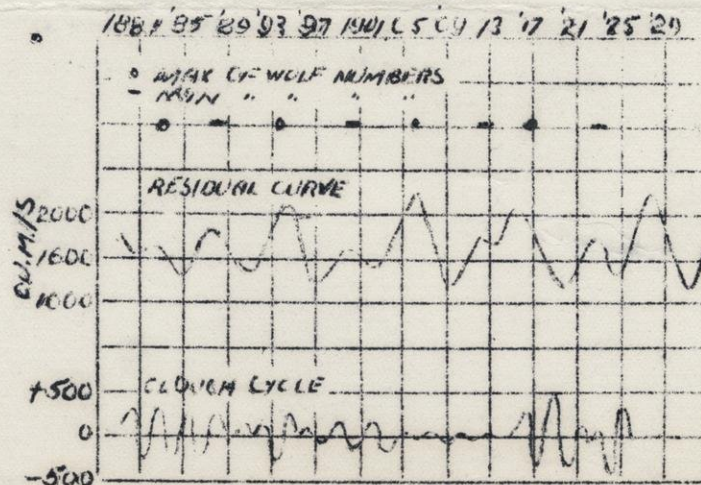 1881 '85 '89 '93 '97 1901 05 09 13 '17 '21 '25 '29
° MAX OF WOLF NUMBERS
- MIN " " " "
RESIDUAL CURVE
2000
1600
1000
CU.M./S
CLOUGH CYCLE
+500
0
-500